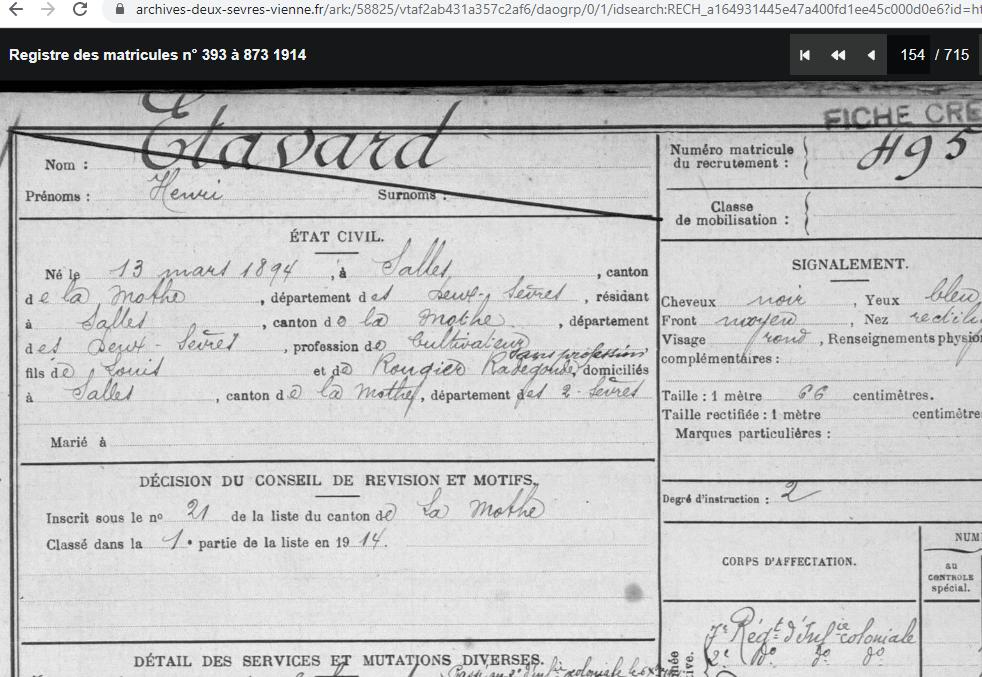 archives-deux-sevres-vienne.fr/ark:/58825/vtaf2ab431a357c2af6/daogrp/0/1/idsearch:RECH_a164931445e47a400fd1ee45c000d0e6?id=ht
Registre des matricules n° 393 à 873 1914
154 / 715
FICHE CRE
Nom : Étavard
Prénoms : Henri Surnoms :
Numéro matricule
du recrutement : 495
Classe
de mobilisation :
ÉTAT CIVIL.
Né le 13 mars 1894, à Salles, canton
de la Mothe, département des Deux-Sèvres, résidant
à Salles, canton de la Mothe, département
des Deux-Sèvres, profession de Cultivateur
sans profession
fils de Louis et de Rougier Radegonde, domiciliés
à Salles, canton de la Mothe, département des 2-Sèvres
Marié à
SIGNALEMENT.
Cheveux noir, Yeux bleu
Front moyen, Nez rectili
Visage rond, Renseignements physio
complémentaires :
Taille : 1 mètre 66 centimètres.
Taille rectifiée : 1 mètre centimètre
Marques particulières :
Degré d'instruction : 2
DÉCISION DU CONSEIL DE REVISION ET MOTIFS.
Inscrit sous le nº 21 de la liste du canton de La Mothe
Classé dans la 1e partie de la liste en 1914.
CORPS D'AFFECTATION.
NUM
au
CONTROLE
spécial.
7e Régt d'Infie coloniale
2e do do do
DÉTAIL DES SERVICES ET MUTATIONS DIVERSES.